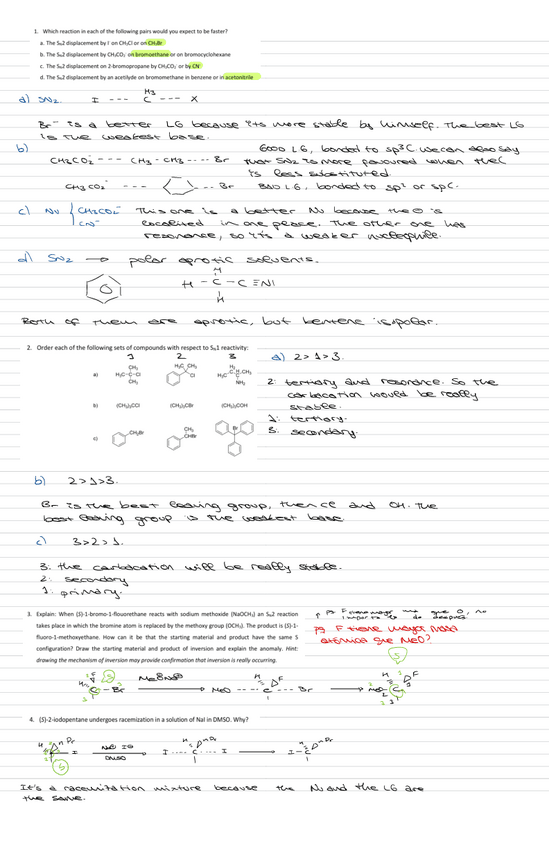 1. Which reaction in each of the following pairs would you expect to be faster?
a. The SN2 displacement by I⁻ on CH3Cl or on CH3Br
b. The SN2 displacement by CH3CO2⁻ on bromoethane or on bromocyclohexane
c. The SN2 displacement on 2-bromopropane by CH3CO2⁻ or by CN⁻
d. The SN2 displacement by an acetylide on bromomethane in benzene or in acetonitrile
a) SN2 I --- C --- X
H3
Br⁻ is a better LG because it's more stable by himself. The best LG
is the weakest base.
b)
CH3CO2⁻ --- CH2-CH3 --- Br
Good LG, bonded to sp3C. We can also say
that SN2 is more favoured when the C
is less substituted.
CH3CO2⁻ --- --- Br Bad LG, bonded to sp2 or spC.
c) Nu { CH3CO2⁻ This one is a better Nu because the ⊖ is
CN⁻ localised in one place. The other one has
resonance, so it's a weaker nucleophile.
d) SN2 → polar aprotic solvents.
H
H - C - C ≡ N
H
Both of them are aprotic, but benzene is apolar.
2. Order each of the following sets of compounds with respect to SN1 reactivity:
1 2 3
a) 2>1>3.
a) CH3 H3C-C-Cl CH3 H3C CH3 Cl H3C NH2
b) (CH3)3CCl (CH3)3CBr (CH3)3COH
c) CH2Br CH3 CHBr Br
2: tertiary and resonance. So the
carbocation would be really
stable.
1: tertiary.
3: secondary.
b) 2>1>3.
Br is the best leaving group, then Cl and OH. The
best leaving group is the weakest base.
c) 3>2>1.
3: the carbocation will be really stable.
2: secondary
1: primary.
3. Explain: When (S)-1-bromo-1-flouorethane reacts with sodium methoxide (NaOCH3) an SN2 reaction
takes place in which the bromine atom is replaced by the methoxy group (OCH3). The product is (S)-1-
fluoro-1-methoxyethane. How can it be that the starting material and product have the same S
configuration? Draw the starting material and product of inversion and explain the anomaly. Hint:
drawing the mechanism of inversion may provide confirmation that inversion is really occurring.
que O, no
importa después
F tiene mayor masa
atómica que MeO?
S
S
H F C - Br → MeO --- C --- Br → MeO - C
4. (S)-2-iodopentane undergoes racemization in a solution of NaI in DMSO. Why?
H nPr I
DMSO
I --- C --- I → I - C nPr
S
It's a racemization mixture because the Nu and the LG are
the same.